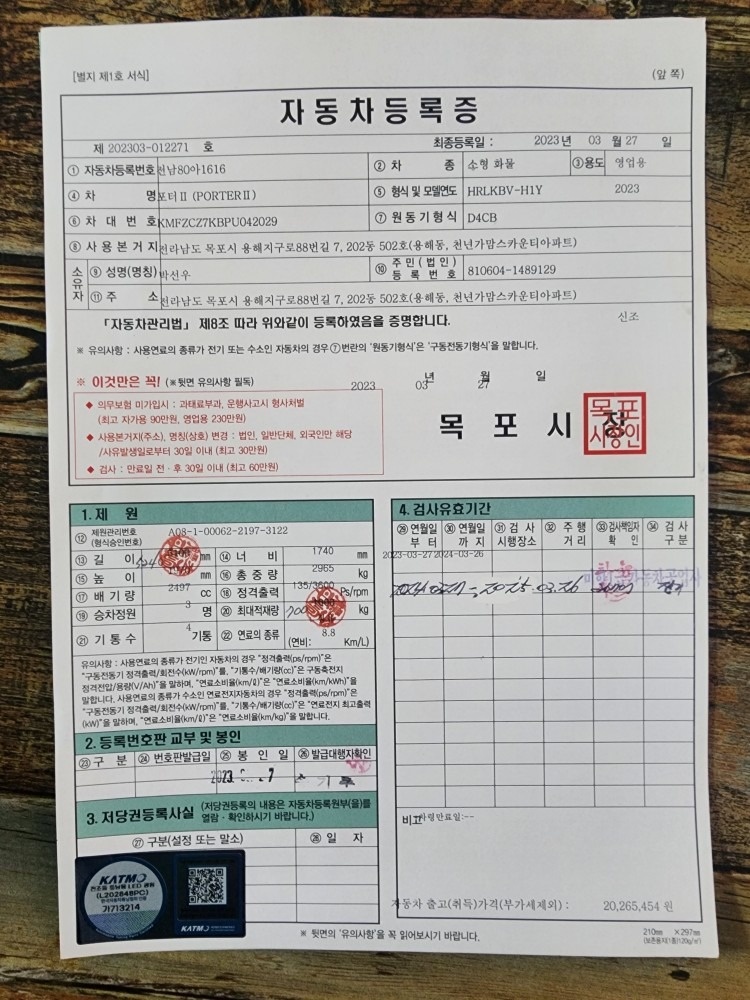 [별지 제1호 서식]
(앞 쪽)
자동차등록증
제 202303-012271 호
최종등록일 : 2023년 03 월 27 일
① 자동차등록번호 전남80아1616 ② 차 종 소형 화물 ③용도 영업용
④ 차 명 포터Ⅱ (PORTERⅡ) ⑤ 형식 및 모델연도 HRLKBV-H1Y 2023
⑥ 차 대 번 호 KMFZCZ7KBPU042029 ⑦ 원동기형식 D4CB
⑧ 사 용 본 거 지 전라남도 목포시 용해지구로88번길 7, 202동 502호(용해동, 천년가맘스카운티아파트)
소유자 ⑨ 성명(명칭) 박선우 ⑩ 주민(법인)등록번호 810604-1489129
⑪ 주 소 전라남도 목포시 용해지구로88번길 7, 202동 502호(용해동, 천년가맘스카운티아파트)
「자동차관리법」 제8조 따라 위와같이 등록하였음을 증명합니다.
신조
※ 유의사항 : 사용연료의 종류가 전기 또는 수소인 자동차의 경우 ⑦번란의 '원동기형식'은 '구동전동기형식'을 말합니다.
※ 이것만은 꼭! (※뒷면 유의사항 필독)
2023 년 03 월 27 일
◆ 의무보험 미가입시 : 과태료부과, 운행사고시 형사처벌
(최고 자가용 90만원, 영업용 230만원)
◆ 사용본거지(주소), 명칭(상호) 변경 : 법인, 일반단체, 외국인만 해당
/사유발생일로부터 30일 이내 (최고 30만원)
◆ 검사 : 만료일 전·후 30일 이내 (최고 60만원)
목 포 시 장
목포
시장인
1. 제 원
⑫ 제원관리번호 (형식승인번호) A08-1-00062-2197-3122
⑬ 길 이 mm ⑭ 너 비 1740 mm
⑮ 높 이 mm ⑯ 총 중 량 2965 kg
⑰ 배 기 량 2497 cc ⑱ 정격출력 135/3600 Ps/rpm
⑲ 승차정원 3 명 ⑳ 최대적재량 700 kg
㉑ 기 통 수 4 기통 ㉒ 연료의 종류 (연비: 8.8 Km/L)
유의사항 : 사용연료의 종류가 전기인 자동차의 경우 "정격출력(ps/rpm)"은
"구동전동기 정격출력/회전수(kW/rpm)"를, "기통수/배기량(cc)"은 구동축전지
정격전압/용량(V/Ah)"을 말하며, "연료소비율(km/ℓ)"은 "연료소비율(km/kWh)"을
말합니다. 사용연료의 종류가 수소인 연료전지자동차의 경우 "정격출력(ps/rpm)"은
"구동전동기 정격출력/회전수(kW/rpm)"를, "기통수/배기량(cc)"은 "연료전지 최고출력
(kW)"을 말하며, "연료소비율(km/ℓ)"은 "연료소비율(km/kg)"을 말합니다.
2. 등록번호판 교부 및 봉인
㉓ 구 분 ㉔ 번호판발급일 ㉕ 봉 인 일 ㉖ 발급대행자확인
3. 저당권등록사실 (저당권등록의 내용은 자동차등록원부(을)를
열람·확인하시기 바랍니다.)
㉗ 구분(설정 또는 말소) ㉘ 일 자
KATMO
(L202848PC)
가713214
KATMO
4. 검사유효기간
㉙ 연월일부터 ㉚ 연월일까지 ㉛ 검 사 시행장소 ㉜ 주 행 거 리 ㉝ 검사책임자 확 인 ㉞ 검 사 구 분
2023-03-27 2024-03-26
비고
차령만료일:--
자동차 출고(취득)가격(부가세제외) : 20,265,454 원
※ 뒷면의 '유의사항'을 꼭 읽어보시기 바랍니다.
210㎜ ×297㎜
(보존용지(1종)120g/㎡)